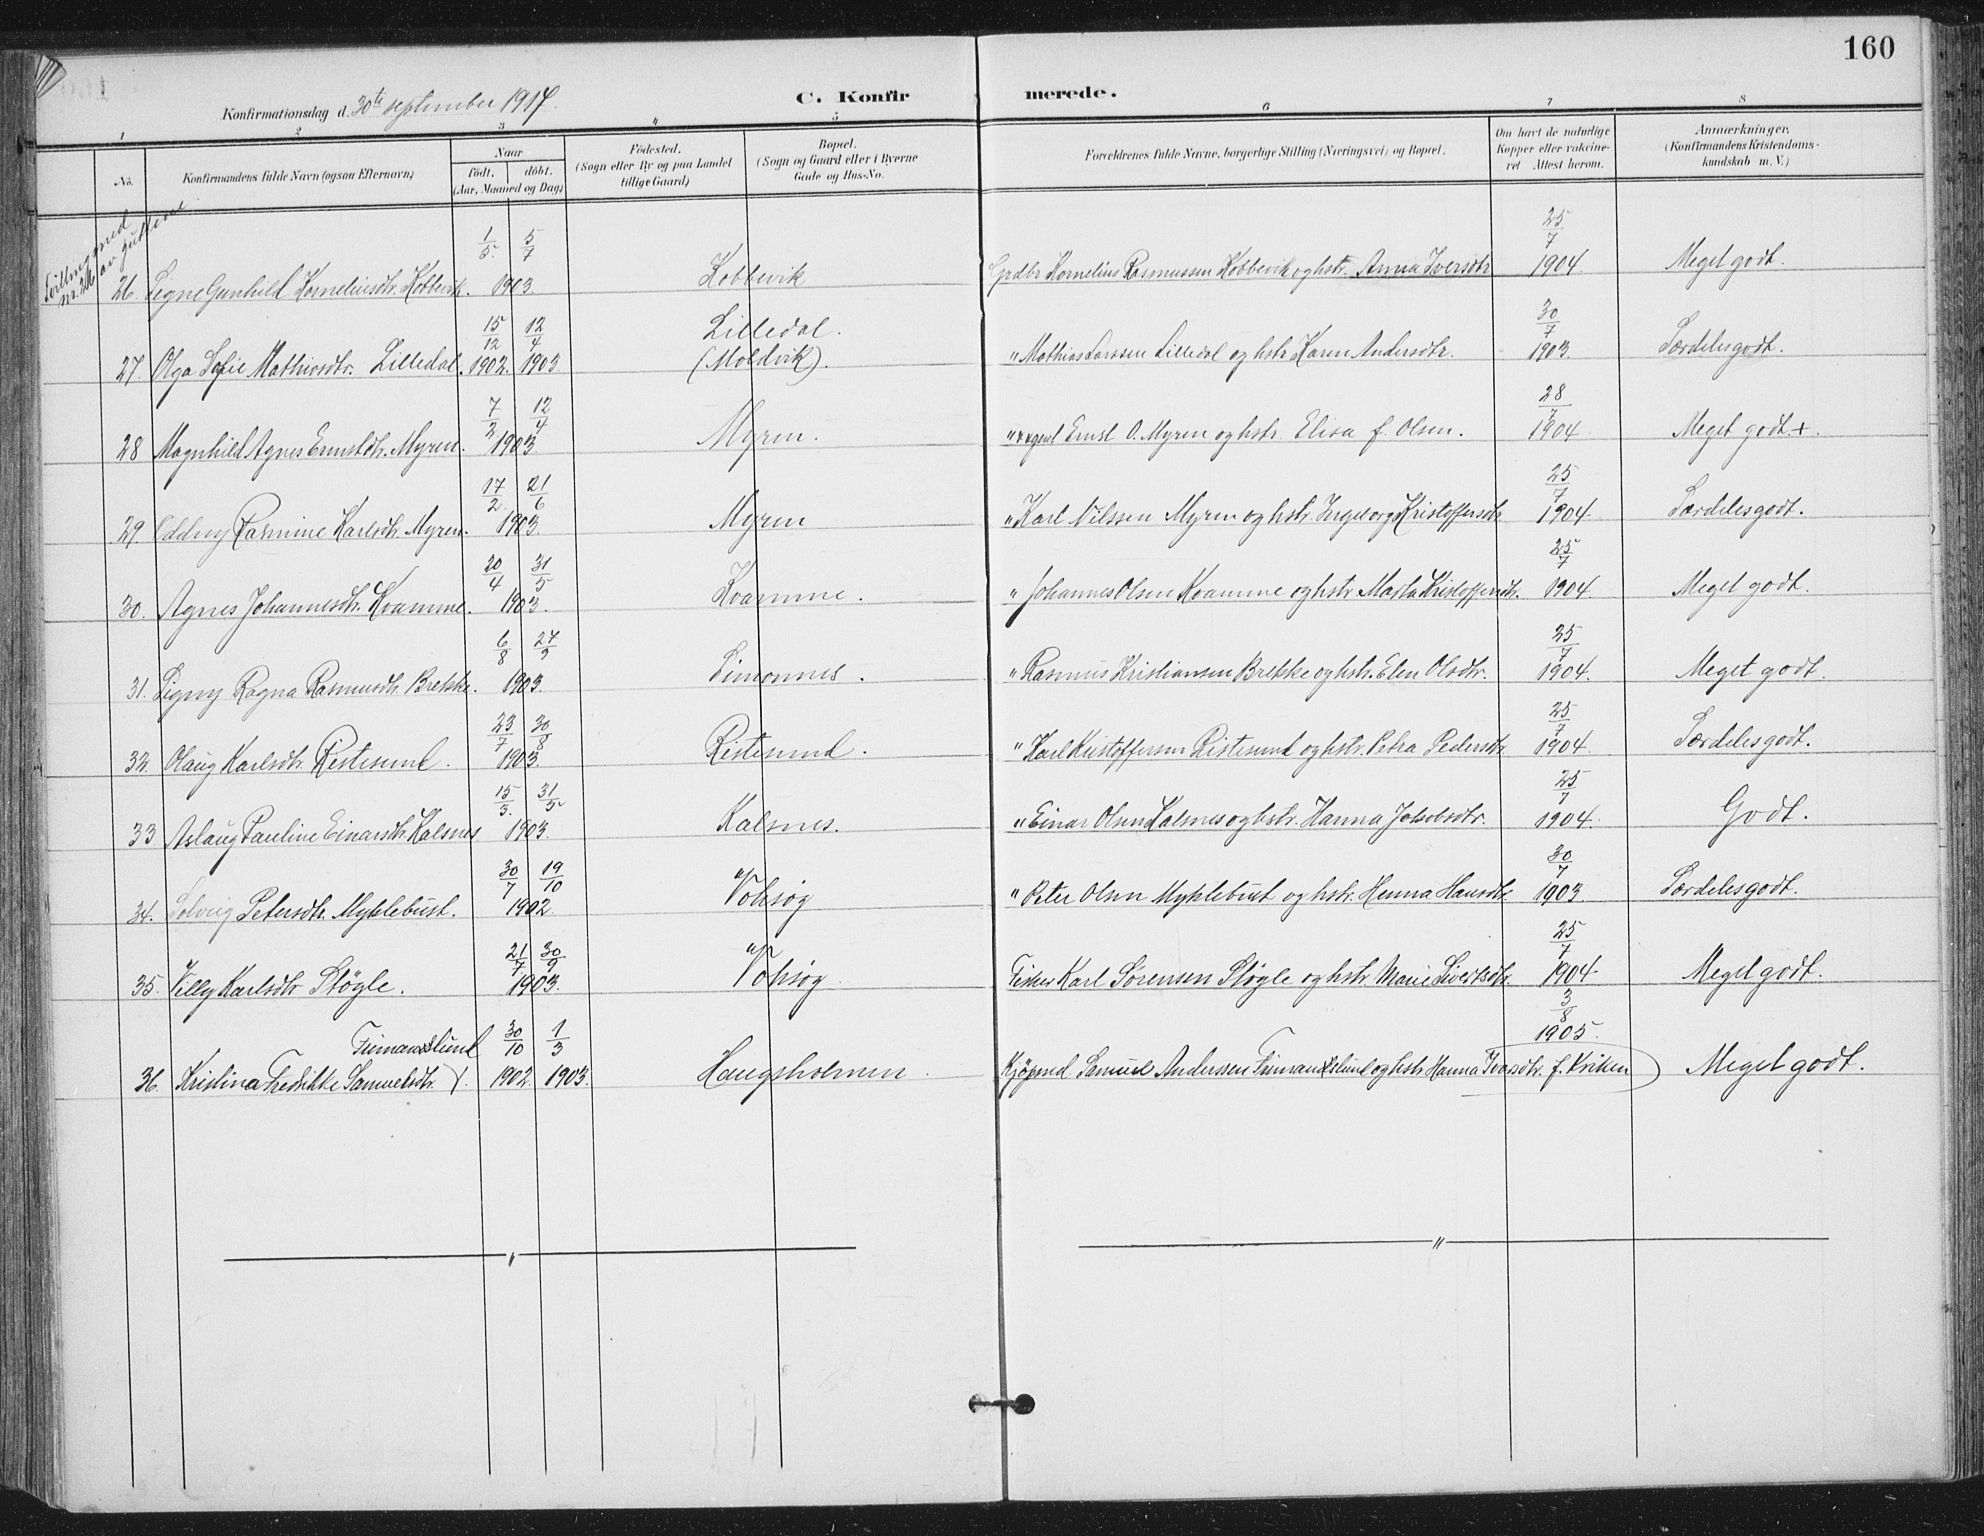 160
Konfirmationsdag d. 30te september 1917. C. Konfirmerede.
1 2 3 4 5 6 7 8
No. Konfirmandens fulde Navn (ogsaa Efternavn) Naar født. døbt. (Aar, Maaned og Dag) Fødested. (Sogn eller By og paa Landet tillige Gaard) Bopæl. (Sogn og Gaard eller i Byerne Gade og Hus-No. Forældrenes fulde Navne, borgerlige Stilling (Næringsvei) og Bopæl. Om havt de naturlige Kopper eller vakcineret Attest herom. Anmærkninger. (Konfirmandens Kristendomskundskab m. V.)
Tvilling med nr. 26 av guttene
26. Signe Gunhild Korneliusdtr. Kobbevik. 1/5 5/7 1903. Kobbevik Grdbr Kornelius Rasmussen Kobbevik og hstr. Anna Iversdtr 25/7 1904. Meget godt.
27. Olga Sofie Mathiasdtr. Lilledal. 15/12 1902. 12/4 1903. Lilledal. (Moldvik). " Mathias Larssen Lilledal og hstr Karen Andersdtr. 30/7 1903. Særdeles godt.
28 Magnhild Agnes Ernstdtr. Myren. 7/2 12/4 1903. Myren. " Ernst O. Myren og hstr. Elisa f. Olsen. 28/7 1904. Meget godt +.
29. Oddny Rasmine Karlsdtr. Myren. 17/2 21/6 1903. Myren " Karl Nilssen Myren og hstr. Ingeborg Kristoffersdtr 25/7 1904. Særdeles godt.
30. Agnes Johannesdtr. Kvamme. 20/4 31/5 1903. Kvamme. " Johannes Olsen Kvamme og hstr Marta Kristoffersdtr. 25/7 1904. Meget godt.
31. Signy Ragna Rasmusdtr. Brekke. 6/8 27/9 1903. Simonnes. " Rasmus Kristiansen Brekke og hstr. Elen Olsdtr. 25/7 1904. Meget godt.
32. Olaug Karlsdtr. Ristesund. 23/7 30/8 1903. Ristesund. " Karl Kristoffersen Ristesund og hstr. Petra Pedersdtr 25/7 1904. Særdeles godt.
33 Aslaug Pauline Einarsdtr. Kalsnes 15/3. 31/5 1903. Kalsnes. " Einar Olsen Kalsnes og hstr. Hanna Jakobsdtr. 25/7 1904. Godt.
34. Solveig Petersdtr. Myklebust. 30/7 19/10 1902. Voksøy " Peter Olsen Myklebust og hstr. Henna Hansdtr. 30/7 1903. Særdeles godt.
35. Villy Karlsdtr Støyle. 21/7 30/9 1903. Voksøy Fisker Karl Sørensen Støyle og hstr. Marie Sivertsdtr. 25/7 1904. Meget godt.
36. Kristina Fredikke Samuelsdtr. Fiimanslund 30/10 1902. 1/3 1903. Haugsholmen Kjøpmd. Samuel Andersen Fiimanslund og hstr Hanna Ivarsdtr. f. Kriken 3/8 1905. Meget godt.
" "